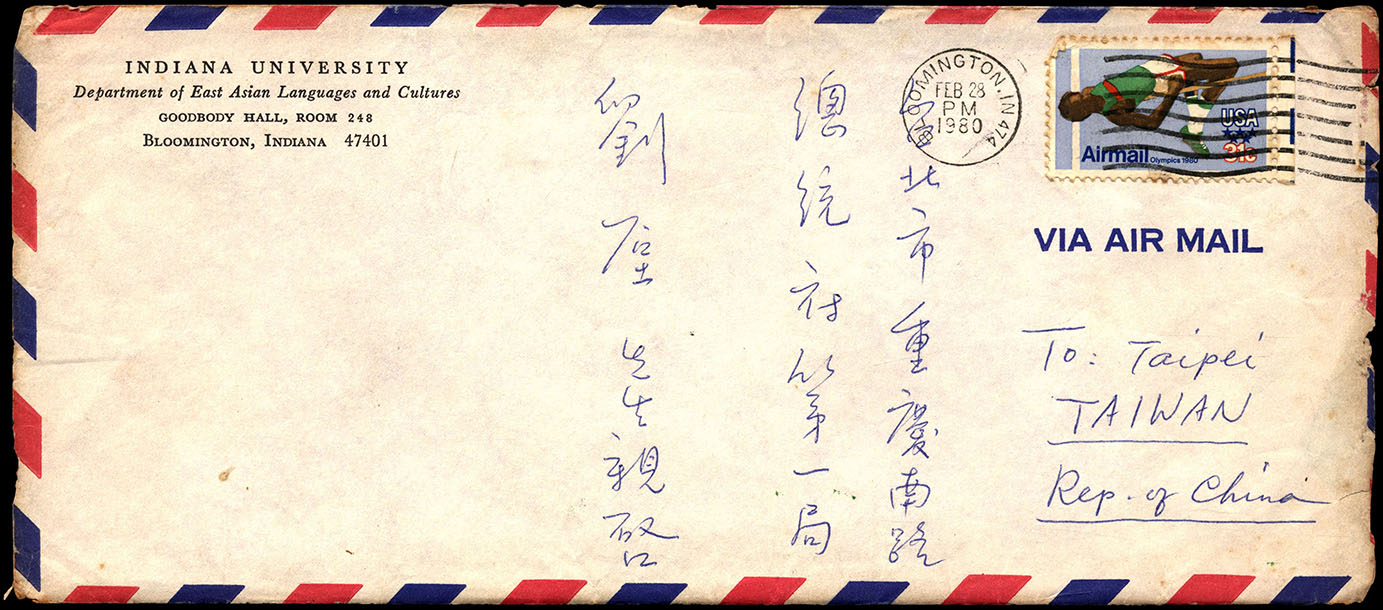 INDIANA UNIVERSITY
Department of East Asian Languages and Cultures
GOODBODY HALL, ROOM 248
BLOOMINGTON, INDIANA 47401
BLOOMINGTON, IN 474
FEB 28
PM
1980
USA
31c
Airmail Olympics 1980
VIA AIR MAIL
To: Taipei
TAIWAN
Rep. of China
台北市重慶南路
總統府第一局
劉 先生親啓